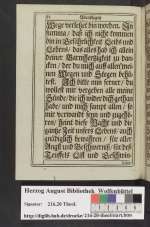 Wege verletzet bin worden. In
summa/ daß ich nicht kommen
bin in Gefährligkeit Leibs und
Lebens/ das alles hab ich allein
deiner Barmhertzigkeit zu dan-
cken/ der du mich auff allen mei-
nen Wegen und Stegen behü-
test. Ich bitte nun ferner/ du
wollest mir vergeben alle meine
Sünde/ die ich wider dich gethan
habe/ und mich sampt allen/ so
mir verwandt seyn und zugehö-
ren/ heint diese Nacht und die
gantze Zeit unsers Lebens auch
gnädiglich bewahren/ für aller
Angst und Beschwernuß/ für des
Teuffels List und Geschwin-
Herzog August Bibliothek Wolfenbüttel
Signatur: 216.20 Theol.
http://diglib.hab.de/drucke/216-20-theol/start.htm